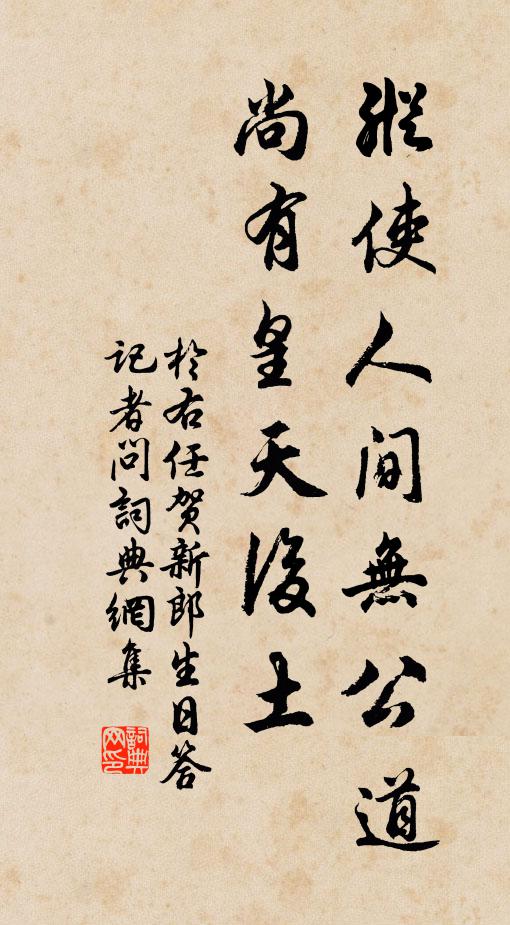 縱使人間無公道
尚有皇天後土
於右任賀新郎生日答
記者問詞典網集
詞典网印